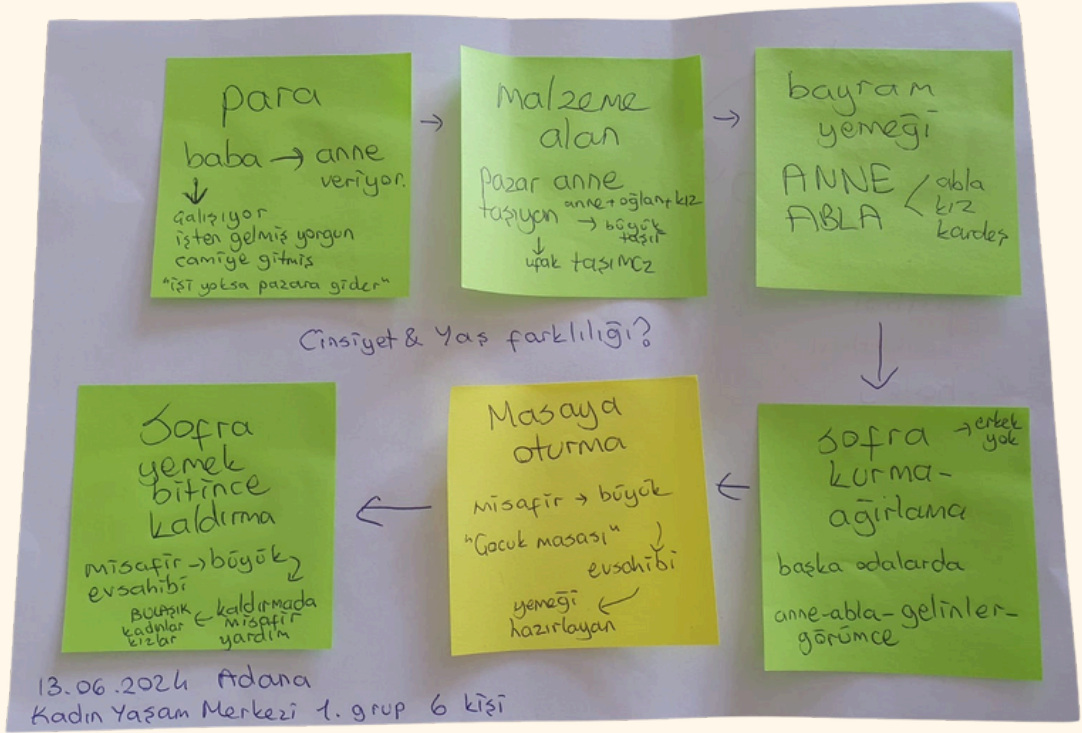 para
baba → anne
veriyor.
↓
çalışıyor
işten gelmiş yorgun
camiye gitmiş
"işi yoksa pazara gider"
→
malzeme
alan
pazar anne
taşıyan anne+oğlan+kız
→ büyük
taşır
↓
ufak taşımaz
→
bayram
yemeği
ANNE
ABLA
abla
kız
kardeş
Cinsiyet & Yaş farklılığı?
↓
sofra → erkek
yok
kurma-
ağırlama
başka odalarda
anne-abla-gelinler-
görümce
←
Masaya
oturma
misafir → büyük
"Çocuk masası"
evsahibi
yemeği ←
hazırlayan
←
Sofra
yemek
bitince
kaldırma
misafir → büyük
evsahibi
kaldırmada
misafir
yardım
←
BULAŞIK
kadınlar
kızlar
13.06.2024 Adana
Kadın Yaşam Merkezi 1. grup 6 kişi